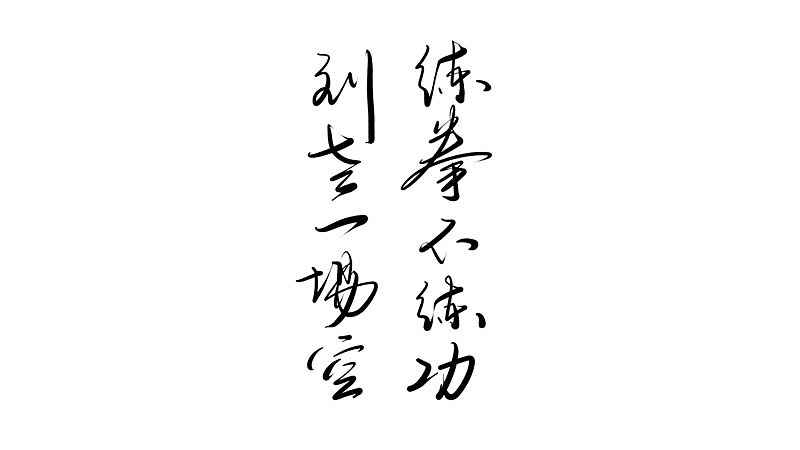 练拳不练功
到老一场空